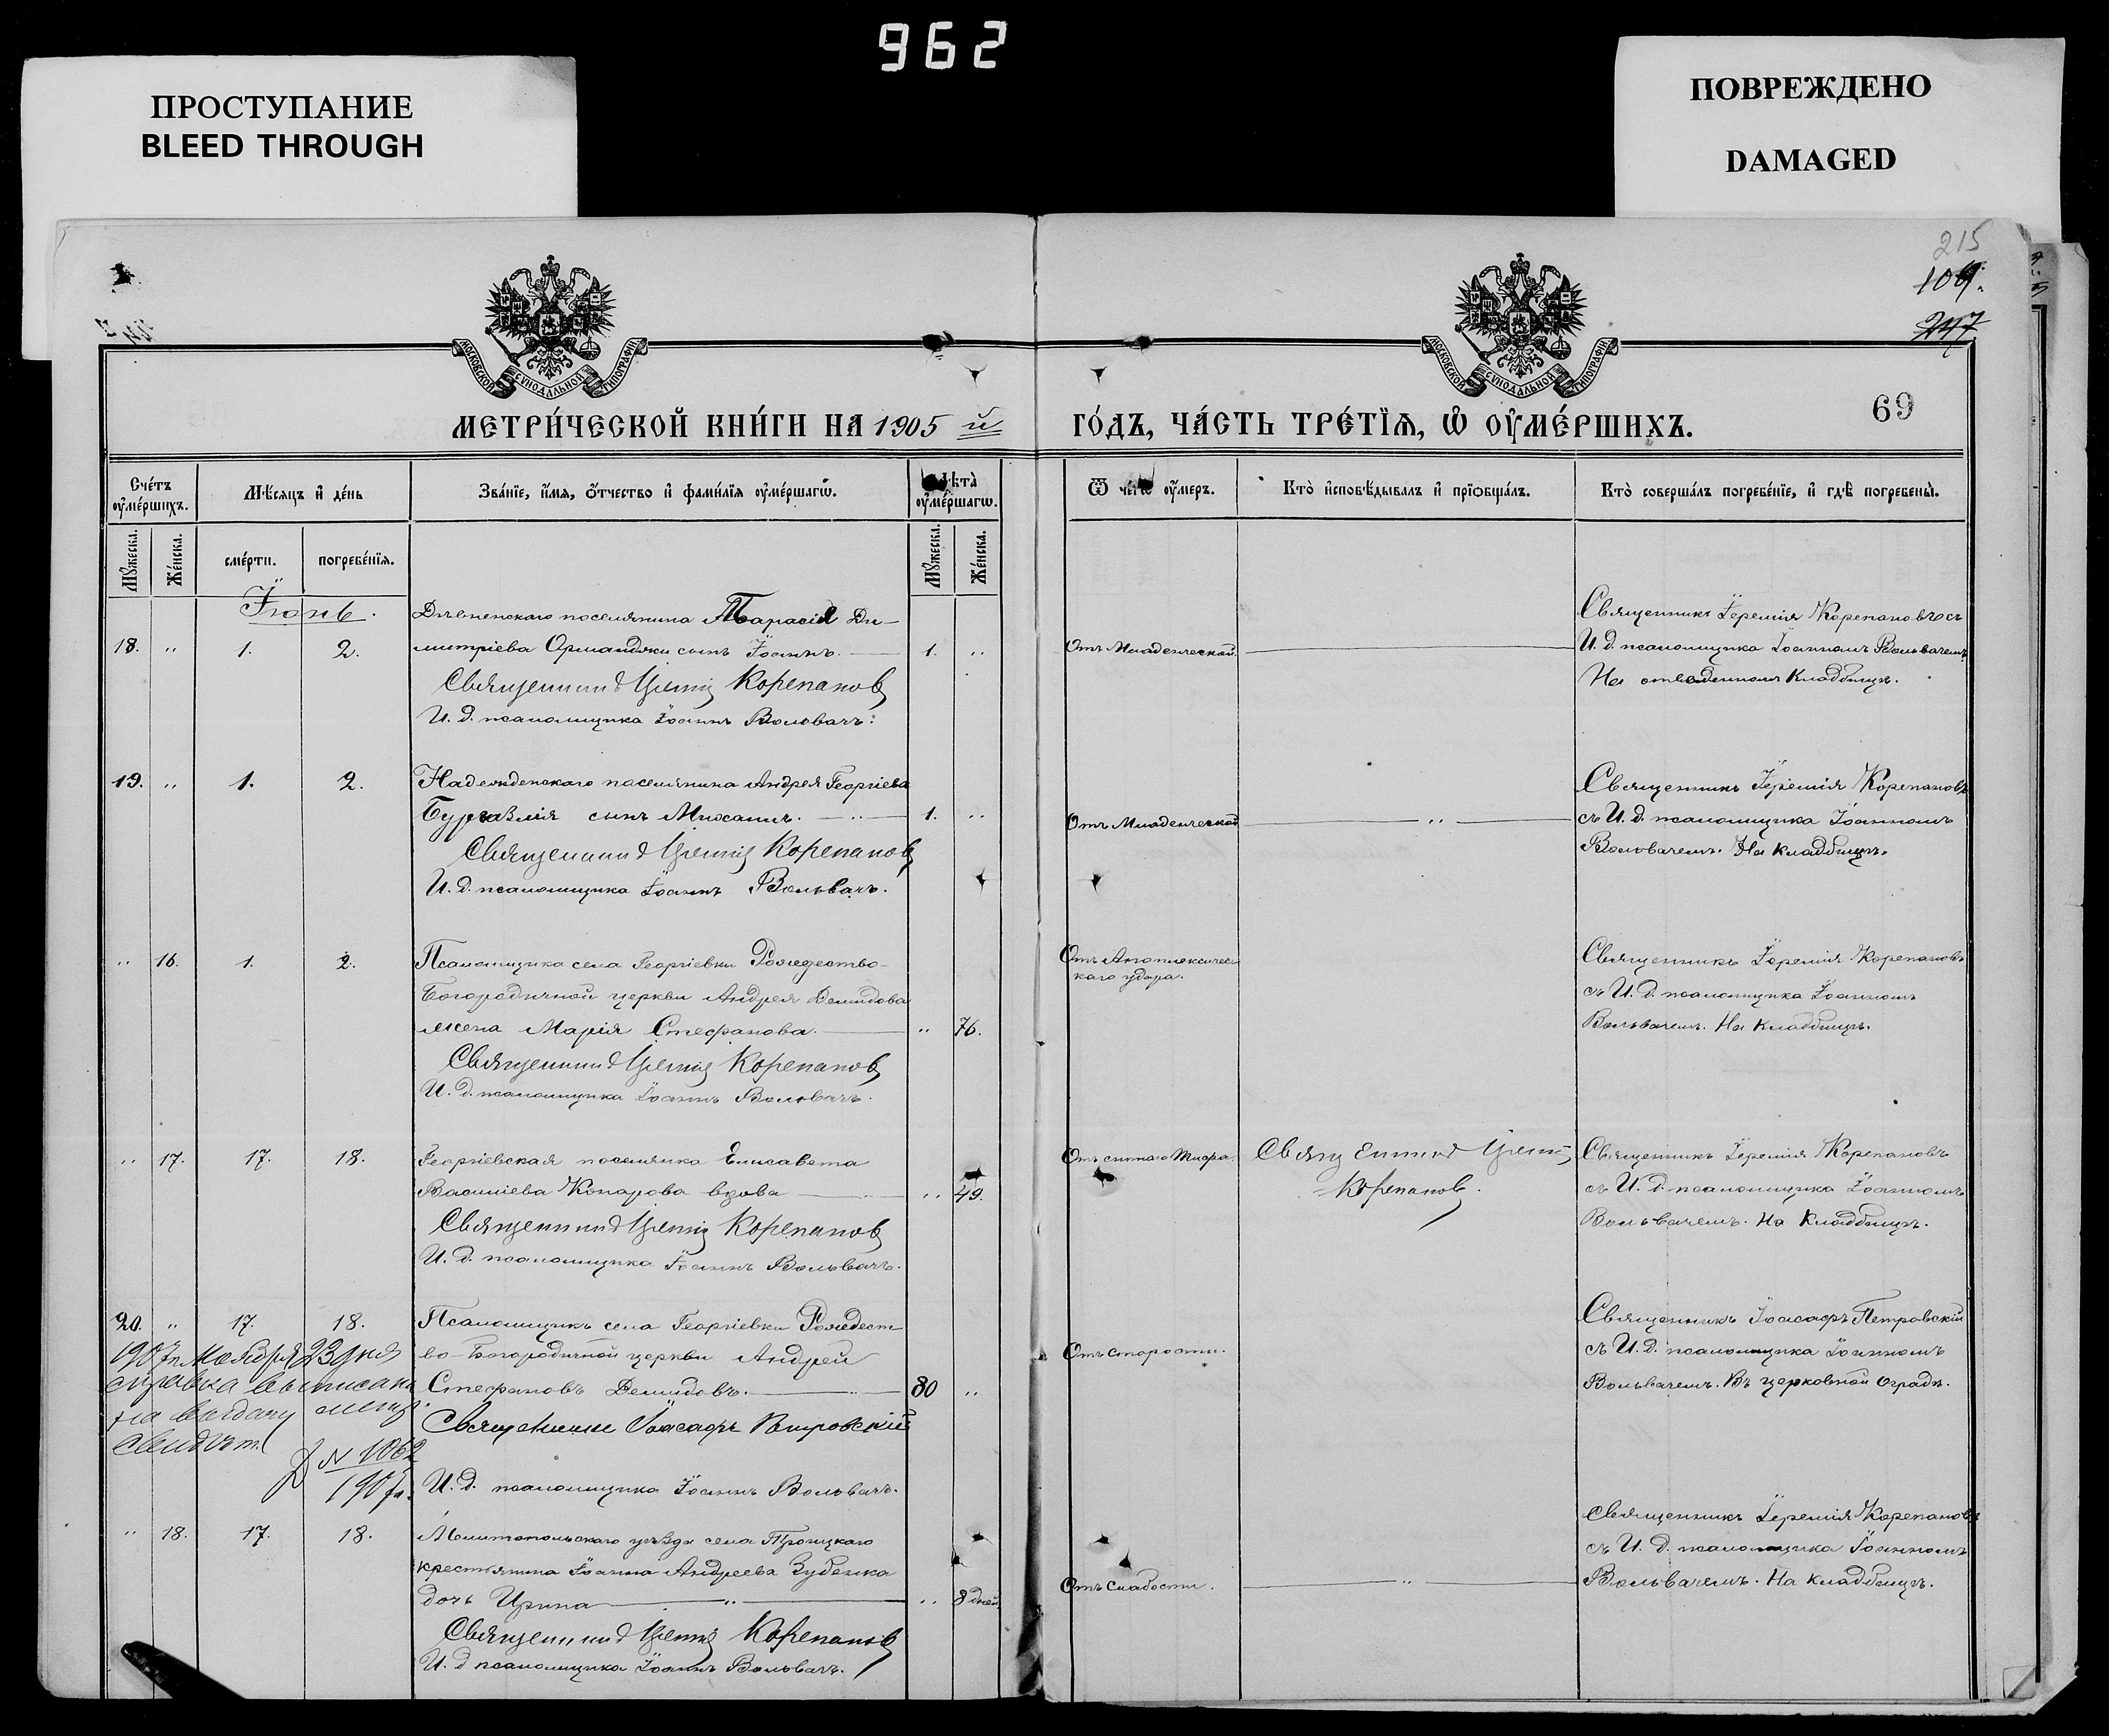 962
ПРОСТУПАНИЕ
BLEED THROUGH
ПОВРЕЖДЕНО
DAMAGED
215
109.
247
МОСКОВСКОЙ СѴНОДАЛЬНОЙ ТИПОГРАФІИ
МОСКОВСКОЙ СѴНОДАЛЬНОЙ ТИПОГРАФІИ
МЕТРИ́ЧЕСКОЙ КНИ́ГИ НА 1905 й ГО́ДЪ, ЧА́СТЬ ТРЕ́ТЇѦ, Ѡ ОУМЕ́РШИХЪ.
69
Сче́тъ оуме́ршихъ.
Мѣсяцъ и де́нь
Зва́нїе, и́мя, о́тчество и фами́лїя оуме́ршагѡ.
Лѣта̀ оуме́ршагѡ.
Ѿ чегѡ̀ оу́меръ.
Кто̀ исповѣ́дывалъ и прїобща́лъ.
Кто̀ соверша́лъ погребе́нїе, и гдѣ̀ погребены̀.
Мꙋ́жеска.
Же́нска.
сме́рти.
погребе́нїя.
Мꙋ́жеска.
Же́нска.
Іюнь.
поселянина Тарасія Ди-
18. " 1. 2. митріева Орманджи сынъ Іоаннъ. 1. "
Священникъ Іеремія Корепановъ
И. д. псаломщика Іоаннъ Вольвачъ.
Отъ Младенческой.
Священникъ Іеремія Корепановъ съ
И. д. псаломщика Іоанномъ Вольвачемъ
На отведенномъ Кладбищѣ.
19. " 1. 2. Надежденскаго поселянина Андрея Георгіева
сынъ Михаилъ. 1. "
Священникъ Іеремія Корепановъ
И. д. псаломщика Іоаннъ Вольвачъ.
Отъ Младенческой "
Священникъ Іеремія Корепановъ
съ И. д. псаломщика Іоанномъ
Вольвачемъ. На кладбищѣ.
" 16. 1. 2. Псаломщика села Георгіевки Рождество-
Богородичной церкви Андрея Демидова
жена Марія Стефанова. " 76.
Священникъ Іеремія Корепановъ
И. д. псаломщика Іоаннъ Вольвачъ.
Отъ Апоплексичес
каго удара.
Священникъ Іеремія Корепановъ
съ И. д. псаломщика Іоанномъ
Вольвачемъ. На кладбищѣ.
" 17. 17. 18. Георгіевская поселянка Елисавета
Василіева Кочарова вдова " 49.
Священникъ Іеремія Корепановъ
И. д. псаломщика Іоаннъ Вольвачъ.
Отъ Тифа.
Священникъ Іеремія
Корепановъ.
Священникъ Іеремія Корепановъ
съ И. д. псаломщика Іоанномъ
Вольвачемъ. На Кладбищѣ.
20. " 17. 18. Псаломщикъ села Георгіевки Рождест
во-Богородичной церкви Андрей
Стефановъ Демидовъ. 80 "
Священникъ Іоасафъ Петровскій
И. д. псаломщика Іоаннъ Вольвачъ.
1907 г. Ноября 23 дня
справка выписана
на выдачу метр.
свидѣт.
№ 1062
1907 г.
Отъ старости.
Священникъ Іоасафъ Петровскій
съ И. д. псаломщика Іоанномъ
Вольвачемъ. Въ церковной оградѣ.
" 18. 17. 18. Мелитопольскаго уѣзда села Троицкаго
крестьянина Іоанна Андреева Зубенка
дочь Ирина " " 8 дней
Священникъ Іеремія Корепановъ
И. д. псаломщика Іоаннъ Вольвачъ.
Отъ слабости. "
Священникъ Іеремія Корепановъ
съ И. д. псаломщика Іоанномъ
Вольвачемъ. На кладбищѣ.